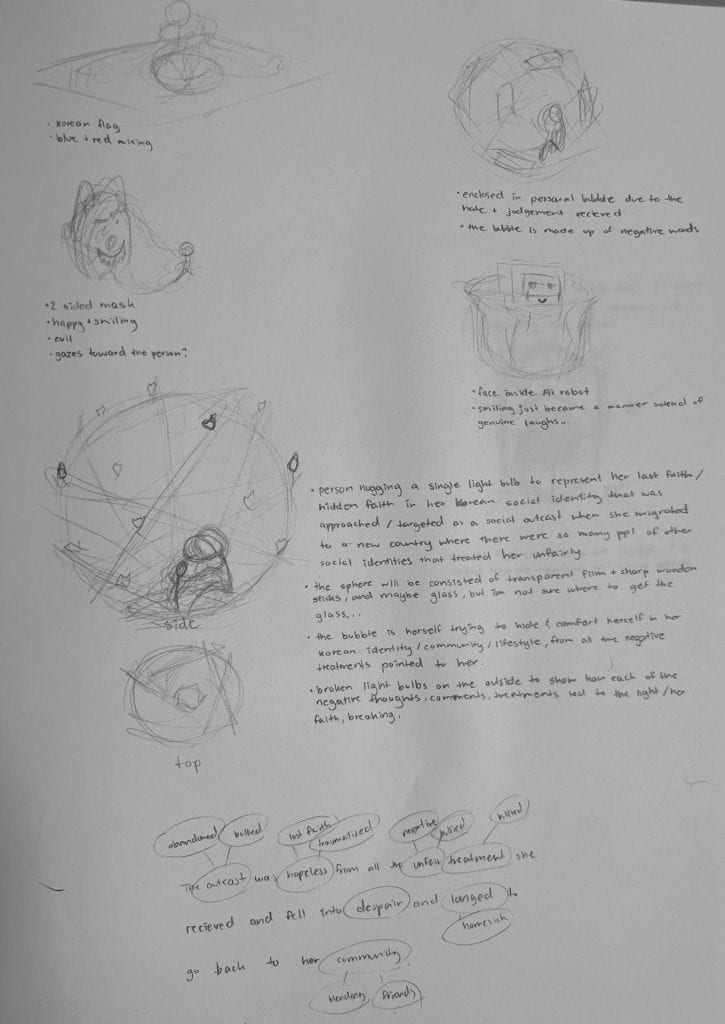 • Korean flag
• blue + red mixing
• enclosed in personal bubble due to the
hate + judgement recieved
• the bubble is made up of negative words
• 2 sided mask
• happy + smiling
• evil
• gazes toward the person?
• face inside Ai robot
• smiling just became a manner instead of
genuine laughs...
• person hugging a single light bulb to represent her last faith /
hidden faith in her Korean social identity that was
approached / targeted as a social outcast when she migrated
to a new country where there were so many ppl of other
social identities that treated her unfairly.
• the sphere will be consisted of transparent flim + sharp wooden
sticks, and maybe glass, but im not sure where to get the
glass...
• the bubble is herself trying to hide & comfort herself in her
Korean identity / community / lifestyle, from all the negative
treatments pointed to her.
• broken light bulbs on the outside to show how each of the
negative thoughts, comments, treatments led to the light / her
faith, breaking.
side
top
abandoned bullied lost faith traumatized negative
The outcast was hopeless from all the unfair treatment she
recieved and fell into despair and longed to
homesick
go back to her community.
friends